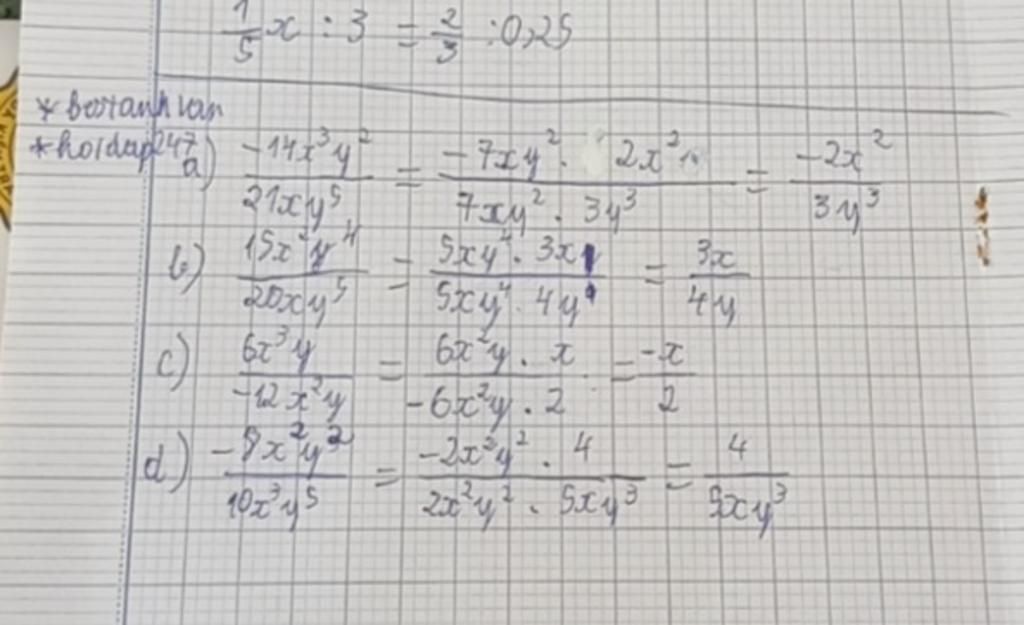 1/5 x : 3 = 2/3 : 0,25
* bostanhvan
* hoidap247
a) -14x³y²/21xy⁵ = -7xy² . 2x²/7xy² . 3y³ = -2x²/3y³
b) 15x²y⁴/20xy⁵ = 5xy⁴ . 3x/5xy⁴ . 4y = 3x/4y
c) 6x³y/-12x²y = 6x²y . x/-6x²y . 2 = -x/2
d) -8x²y²/10x³y⁵ = -2x²y² . 4/2x²y² . 5xy³ = 4/5xy³